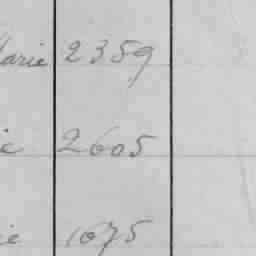 Marie 2359
ie 2605
ie 1075